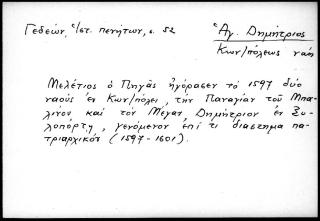 Γεδεών, Ἱστ. πενήτων, σ. 52
Ἁγ. Δημήτριος
Κων/πόλεως ναός
Μελέτιος ὁ Πηγᾶς ἠγόρασεν τὸ 1597 δύο
ναοὺς ἐν Κων/πόλει, τὴν Παναγίαν τοῦ Μπα-
λίνου καὶ τὸν Μέγαν Δημήτριον ἐν Ξυ-
λοπόρτῃ, γενόμενον ἐπί τι διάστημα πα-
τριαρχικόν (1597-1601).